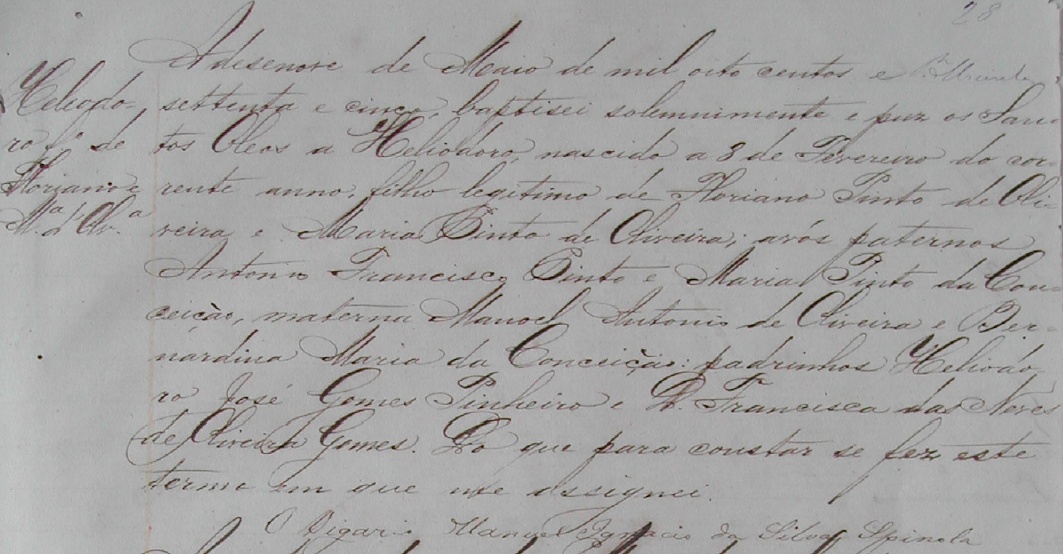 28
A desenove de Maio de mil oito centos e
settenta e cinco, baptisei solemnimente e puz os San-
tos Oleos a Heliodoro, nascido a 3 de Fevereiro do cor-
rente anno, filho legitimo de Floriano Pinto de Oli-
veira e Maria Pinto de Oliveira; avós paternos
Antonio Francisco Pinto e Maria Pinto da Con-
ceição, materna Manoel Antonio de Oliveira e Ber-
nardina Maria da Conceição: padrinhos Heliodo-
ro José Gomes Pinheiro e D. Francisca das Neves
de Oliveira Gomes. Do que para constar se fez este
termo em que me assignei.
O Vigario Manoel Ignacio da Silva Spinola
Heliodo-
ro fº de
Floriano e
Mª d' Olvª